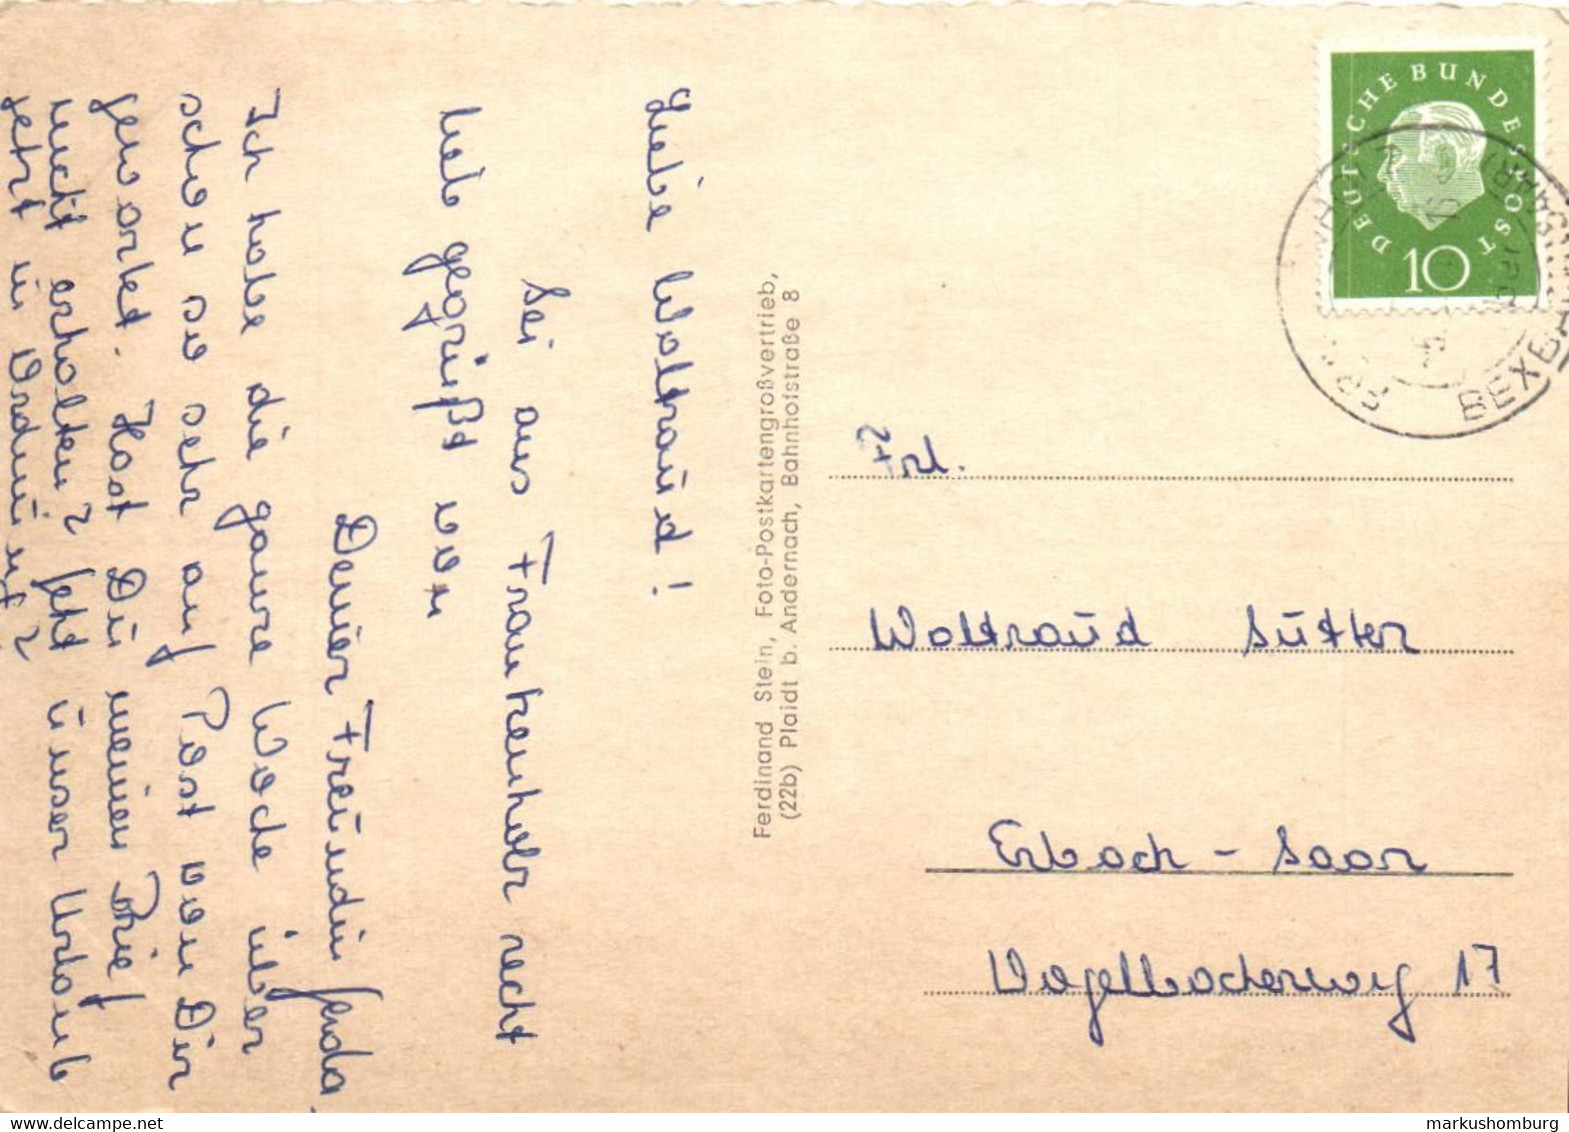 Liebe Waltraud!
Sei aus Frankenholz recht
lieb gegrüßt von
Deiner Freundin Gerda
Ich habe die ganze Woche über
schon so sehr auf Post von Dir
gewartet. Hast Du meinen Brief
nicht erhalten? Geht unser Urlaub
jetzt in Ordnung?
Ferdinand Stein, Foto-Postkartengroßvertrieb,
(22b) Plaidt b. Andernach, Bahnhofstraße 8
DEUTSCHE BUNDESPOST
10
BEXBA
Frl.
Waltraud Sutter
Erbach - Saar
Vogelbacherweg 17
delcampe.net
markushomburg